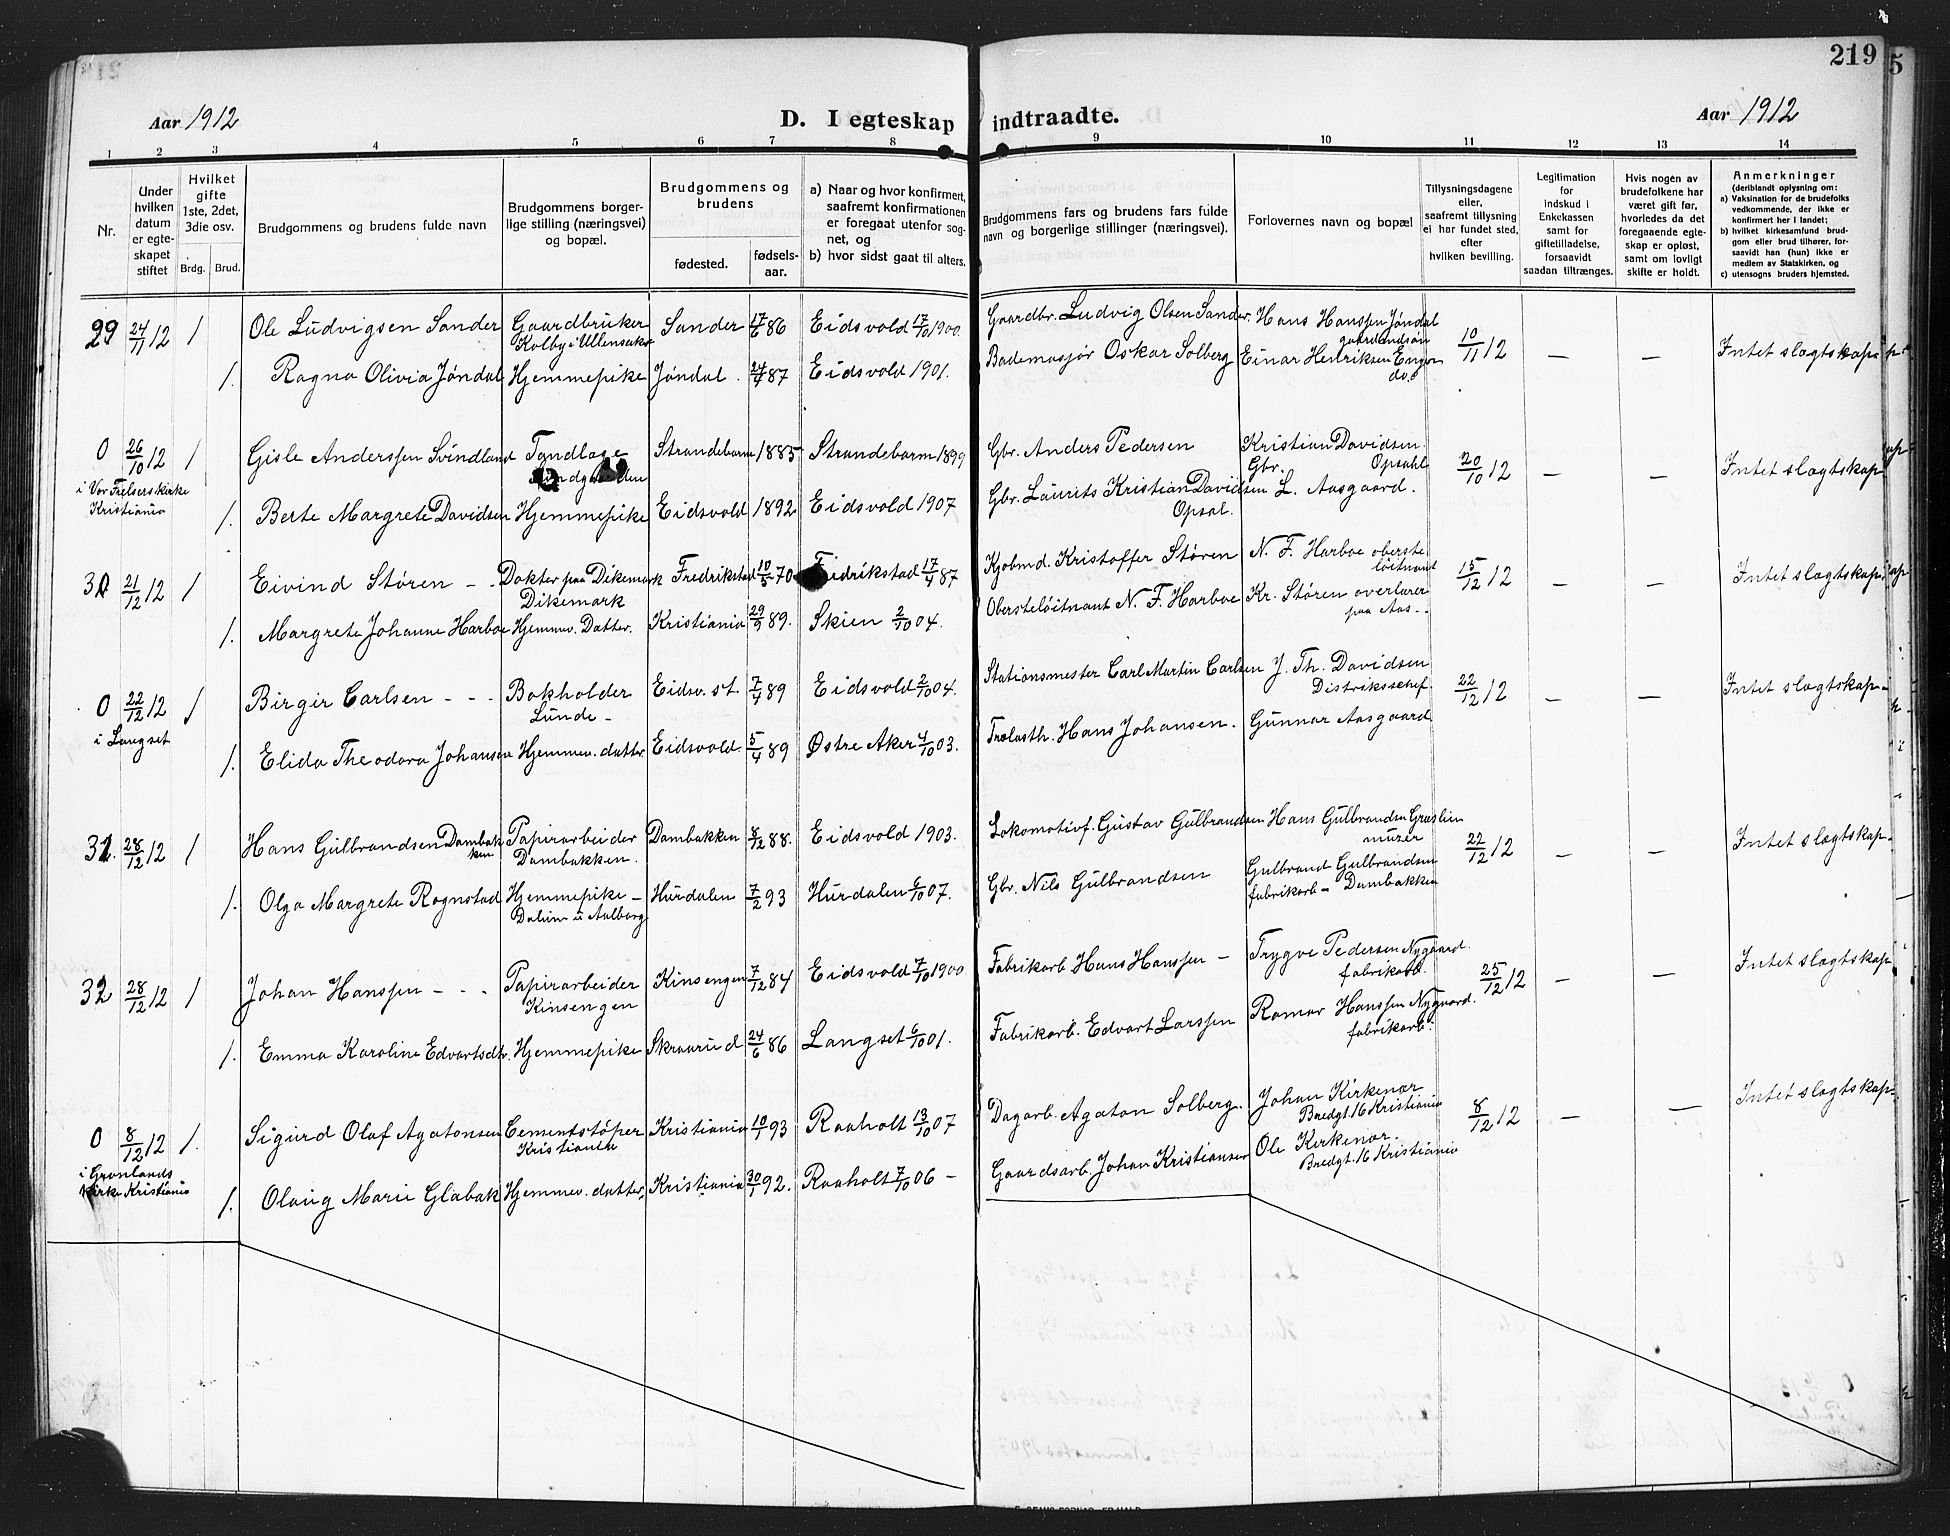 219
5
Aar 1912
D. I egteskap indtraadte.
Aar 1912
1 2 3 4 5 6 7 8 9 10 11 12 13 14
Nr.
Under hvilken datum er egteskapet stiftet
Hvilket gifte 1ste, 2det, 3die osv.
Brdg. Brud.
Brudgommens og brudens fulde navn
Brudgommens borgerlige stilling (næringsvei) og bopæl.
Brudgommens og brudens
fødested. fødselsaar.
a) Naar og hvor konfirmert, saafremt konfirmationen er foregaat utenfor sognet, og
b) hvor sidst gaat til alters.
Brudgommens fars og brudens fars fulde navn og borgerlige stillinger (næringsvei).
Forlovernes navn og bopæl
Tillysningsdagene eller, saafremt tillysning ei har fundet sted, efter hvilken bevilling.
Legitimation for indskud i Enkekassen samt for giftetilladelse, forsaavidt saadan tiltrænges.
Hvis nogen av brudefolkene har været gift før, hvorledes da det foregaaende egteskap er opløst, samt om lovligt skifte er holdt.
Anmerkninger
(deriblandt oplysning om:
a) Vaksination for de brudefolks vedkommende, der ikke er konfirmert her i landet;
b) hvilket kirkesamfund brudgom eller brud tilhører, forsaavidt han (hun) ikke er medlem av Statskirken, og
c) utensogns bruders hjemsted.
29 24/11 12 1 Ole Ludvigsen Sander Gaardbruker Kolby i Ullensaker Sander 17/6 86 Eidsvold 17/10 1900 Gaardbr. Ludvig Olsen Sander. Hans Hanssen Jøndal gaardmandsøn 10/11 12 — — Intet slægtskap
1. Ragna Olivia Jøndal Hjemmepike Jøndal. 24/7 87 Eidsvold 1901. Bademasjør Oskar Solberg Einar Henriksen Engen do.
0 26/10 12 1 Gisle Anderssen Svindland Strandebarm 1885 Strandebarm 1899 Gbr. Anders Pedersen Kristian Davidsen Gbr. Opsahl 20/10 12 — — Intet slægtskap
i Vor Frelsers kirke Kristiania
1. Berte Margrete Davidsen Hjemmepike Eidsvold 1892 Eidsvold 1907 Gbr. Laurits Kristian Davidsen Opsal. L. Aasgaard.
30 21/12 12 1 Eivind Støren - - Dokter paa Dikemark Dikemark Fredrikstad 10/5 70 Fredrikstad 17/4 87 Kjøbmd. Kristoffer Støren N. F. Harboe obersteløitnant 15/12 12 — — Intet slægtskap
1. Margrete Johanne Harboe Hjemmev. Datter. Kristiania 29/9 89. Skien 2/10 04. Obersteløitnant N. F. Harboe Kr. Støren overlærer paa Aas - -
0 22/12 12 1 Birgir Carlsen - - - Bokholder Lunde - Eidsv. st. 7/4 89 Eidsvold 2/10 04. Stationsmester Carl Martin Carlsen J. Th. Davidsen Distrikssehef. 22/12 12 — — Intet slægtskap -
i Langset
1. Elida Theodora Johansen Hjemmev. datter Eidsvold. 5/4 89 Østre Aker 4/10 03. Trælasth. Hans Johansen. Gunnar Aasgaard
31. 28/12 12 1 Hans Gulbrandsen Dambakken Papirarbeider Dambakken. Dambakken 8/12 88. Eidsvold 1903. Lokomotivf. Gustav Gulbrandsen Hans Gulbrandsen murer 22/12 12 — — Intet slægtskap -
1. Olga Margrete Rognstad Hjemmepike - Hurdalen 7/2 93 Hurdalen 6/10 07. Gbr. Nils Gulbrandsen Gulbrand Gulbrandsen fabrikarb - Dambakken
32 28/12 12 1 Johan Hanssen - - - Papirarbeider Kinsengen Kinsengen 7/12 84 Eidsvold 7/10 1900 Fabrikarb. Hans Hanssen - Trygve Pedersen Nygaard. fabrikarb. 25/12 12 — — Intet slægtskap
1. Emma Karoline Edvartsdtr. Hjemmepike Skraarud 24/6 86 Langset 6/10 01. Fabrikarb. Edvart Larssen Ramar Hanssen Nygaard. fabrikarb.
0 8/12 12 1. Sigurd Olaf Agatonsen Cementstøper Kristiania Kristiania 10/1 93 Raaholt 13/10 07 Dagarb. Agaton Solberg. Johan Kirkenær Bredgt. 16 Kristiania 8/12 12 — — Intet slægtskap -
i Grønlands kirke Kristiania
1. Olaug Marie Glabak Hjemmev. datter. Kristiania 30/1 92. Raaholt 7/10 06 - Gaardsarb. Johan Kristiansen Ole Kirkenær. Bredgt. 16 Kristiania